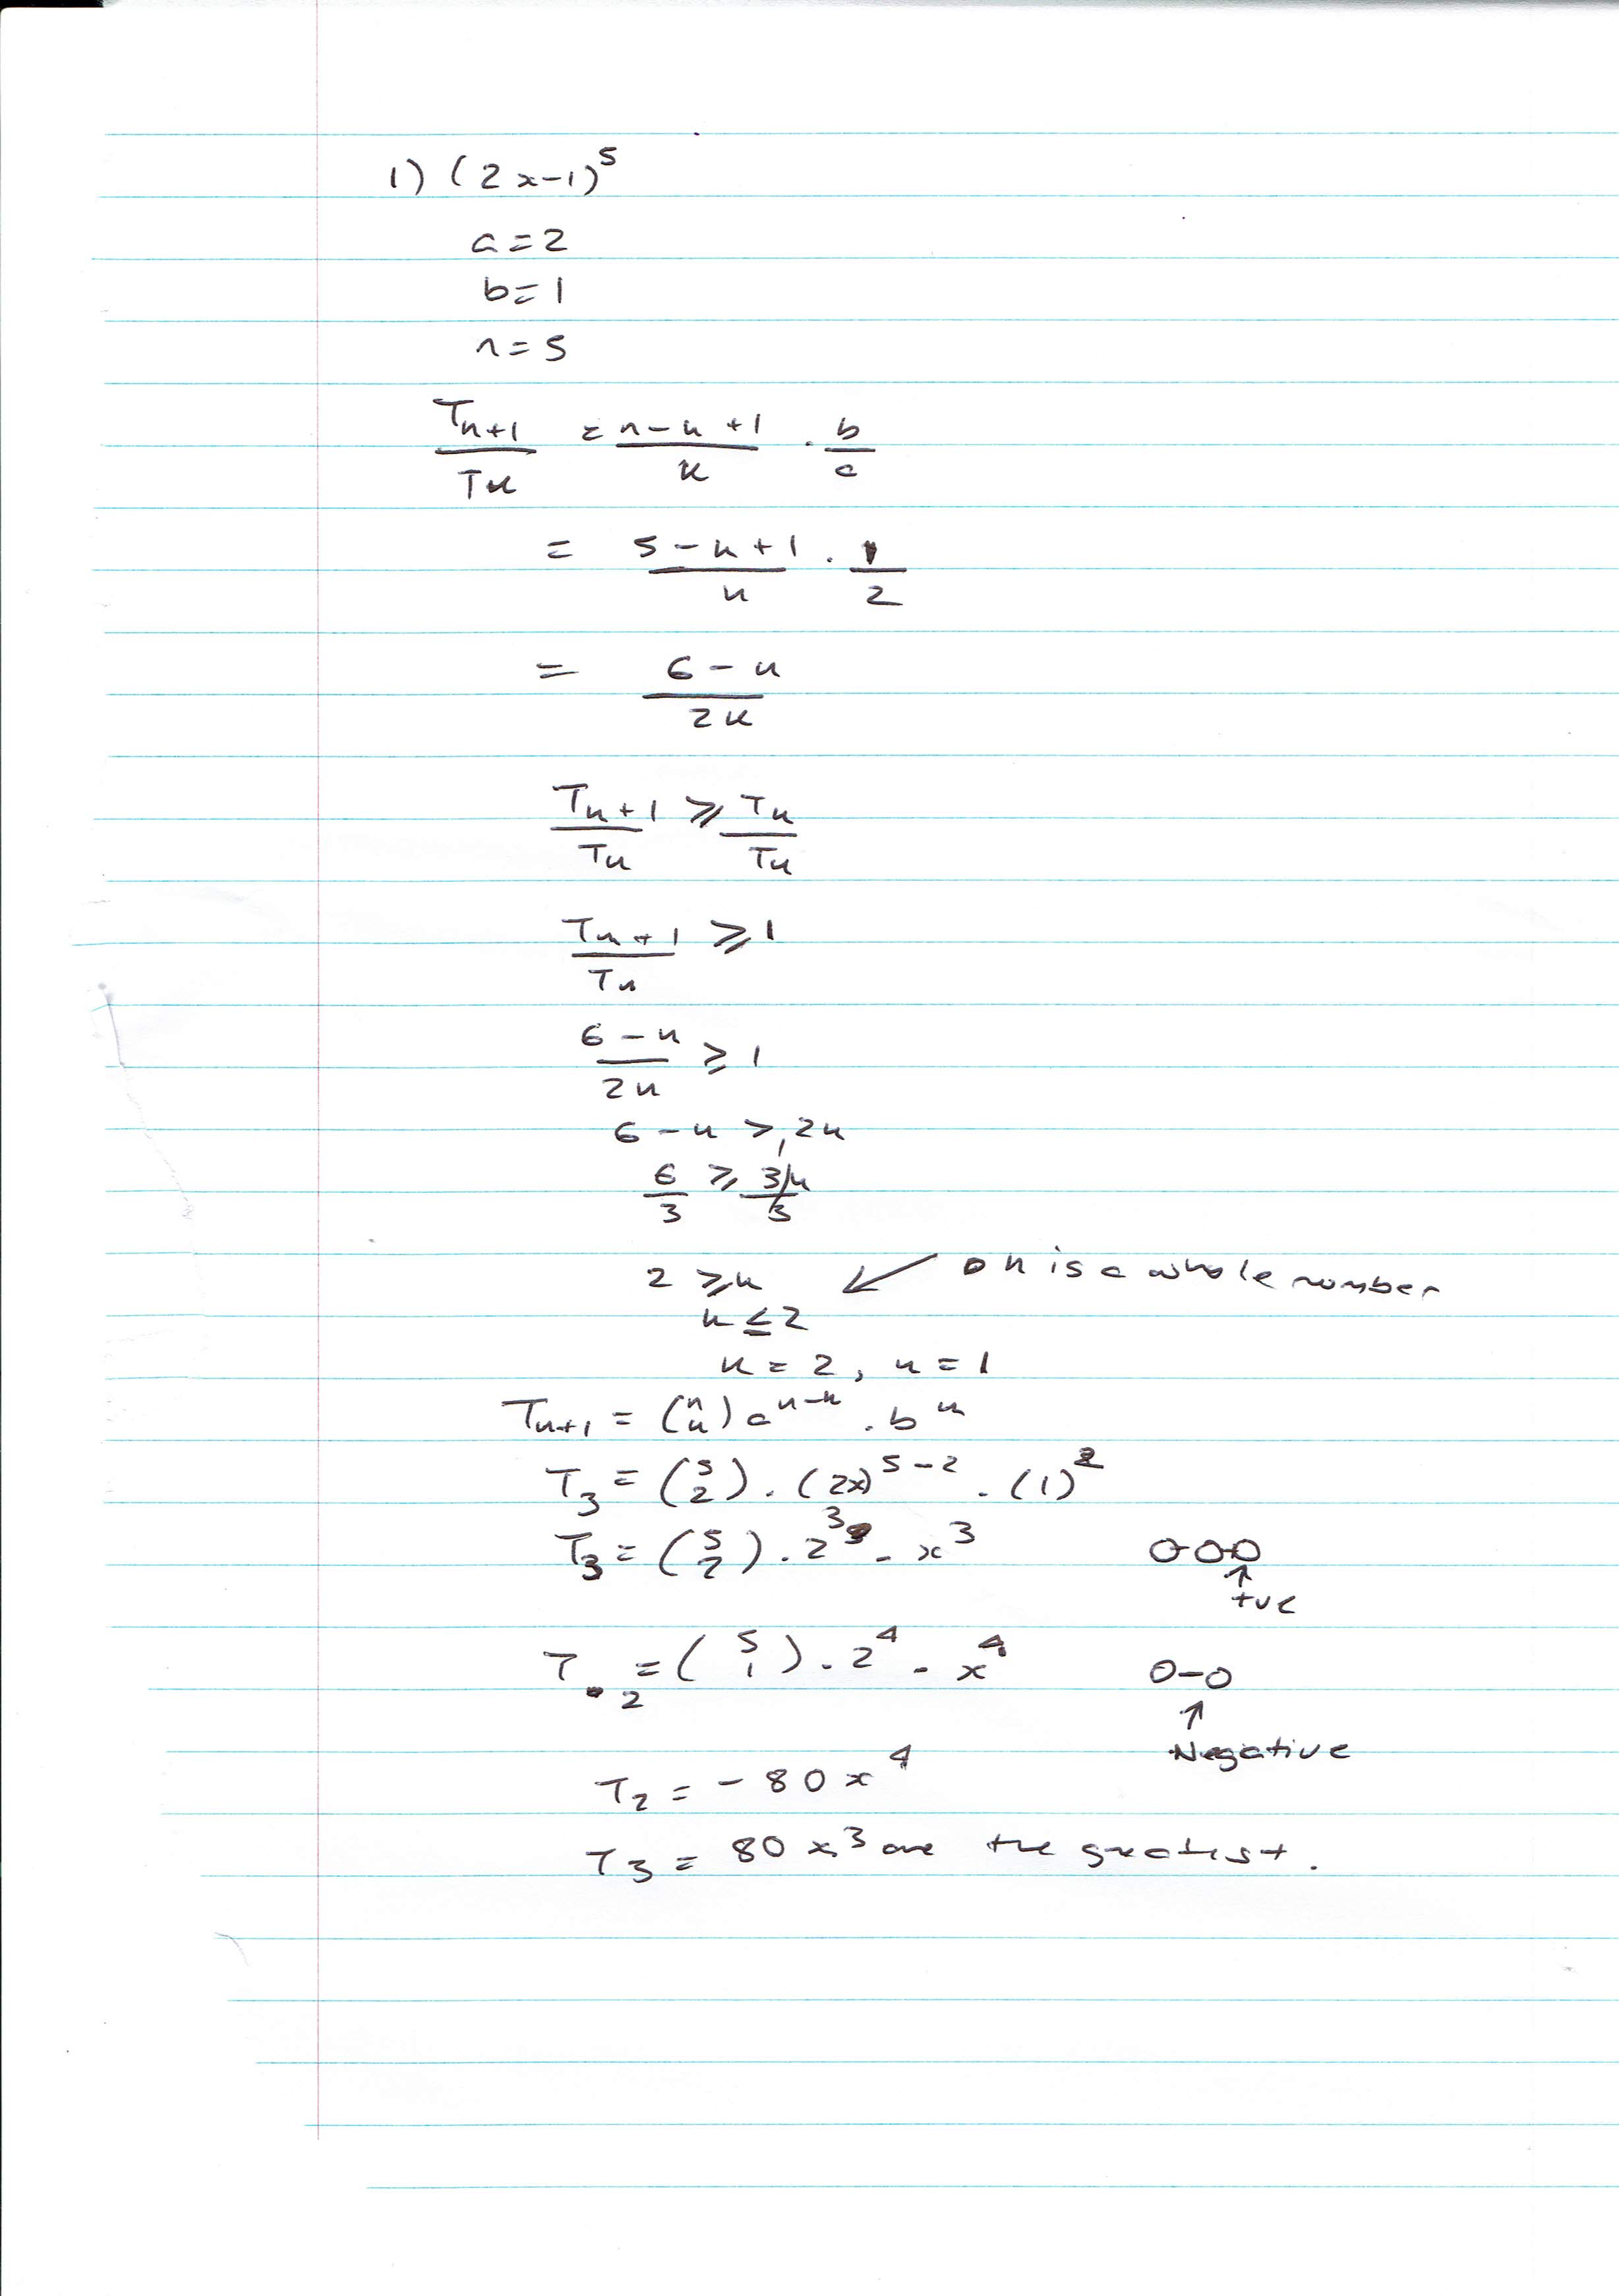 1) (2x-1)^5
a=2
b=1
n=5
T_{k+1}/T_k = (n-k+1)/k · b/a
= (5-k+1)/k · 1/2
= (6-k)/2k
T_{k+1}/T_k ⩾ T_k/T_k
T_{k+1}/T_k ⩾ 1
(6-k)/2k ⩾ 1
6-k ⩾ 2k
6/3 ⩾ 3k/3
2 ⩾ k ↙ k is a whole number
k ≤ 2
k = 2, k = 1
T_{k+1} = (n k) a^{n-k} . b^k
T_3 = (5 2) . (2x)^{5-2} . (1)^2
T_3 = (5 2) . 2^3 . x^3 0-0-0 ↑ +ve
T_2 = (5 1) . 2^4 . x^4 0-0 ↑
Negative
T_2 = -80x^4
T_3 = 80x^3 are the greatest.